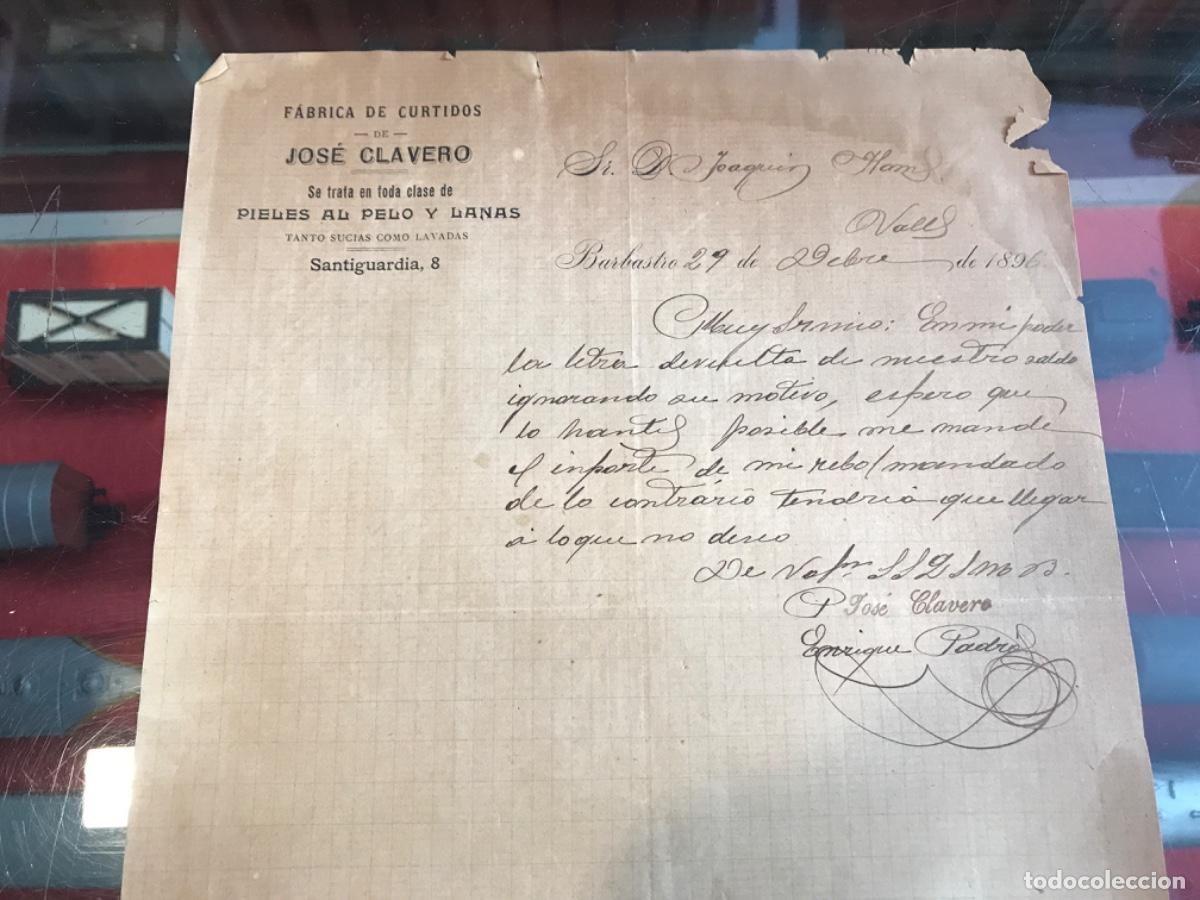 FÁBRICA DE CURTIDOS
— DE —
JOSÉ CLAVERO
Se trata en toda clase de
PIELES AL PELO Y LANAS
TANTO SUCIAS COMO LAVADAS
Santiguardia, 8
Sr. D Joaquin
Valls
Barbastro 29 de Debre de 1896
Muy Sr mio: En mi poder
la letra devuelta de nuestro saldo
ignorando su motivo, espero que
lo hantes posible me mande
el inporte de mi rebo/ mandado
de lo contrario tendria que llegar
a lo que no deseo
De
P José Clavero
Enrique Padrós
todocoleccion